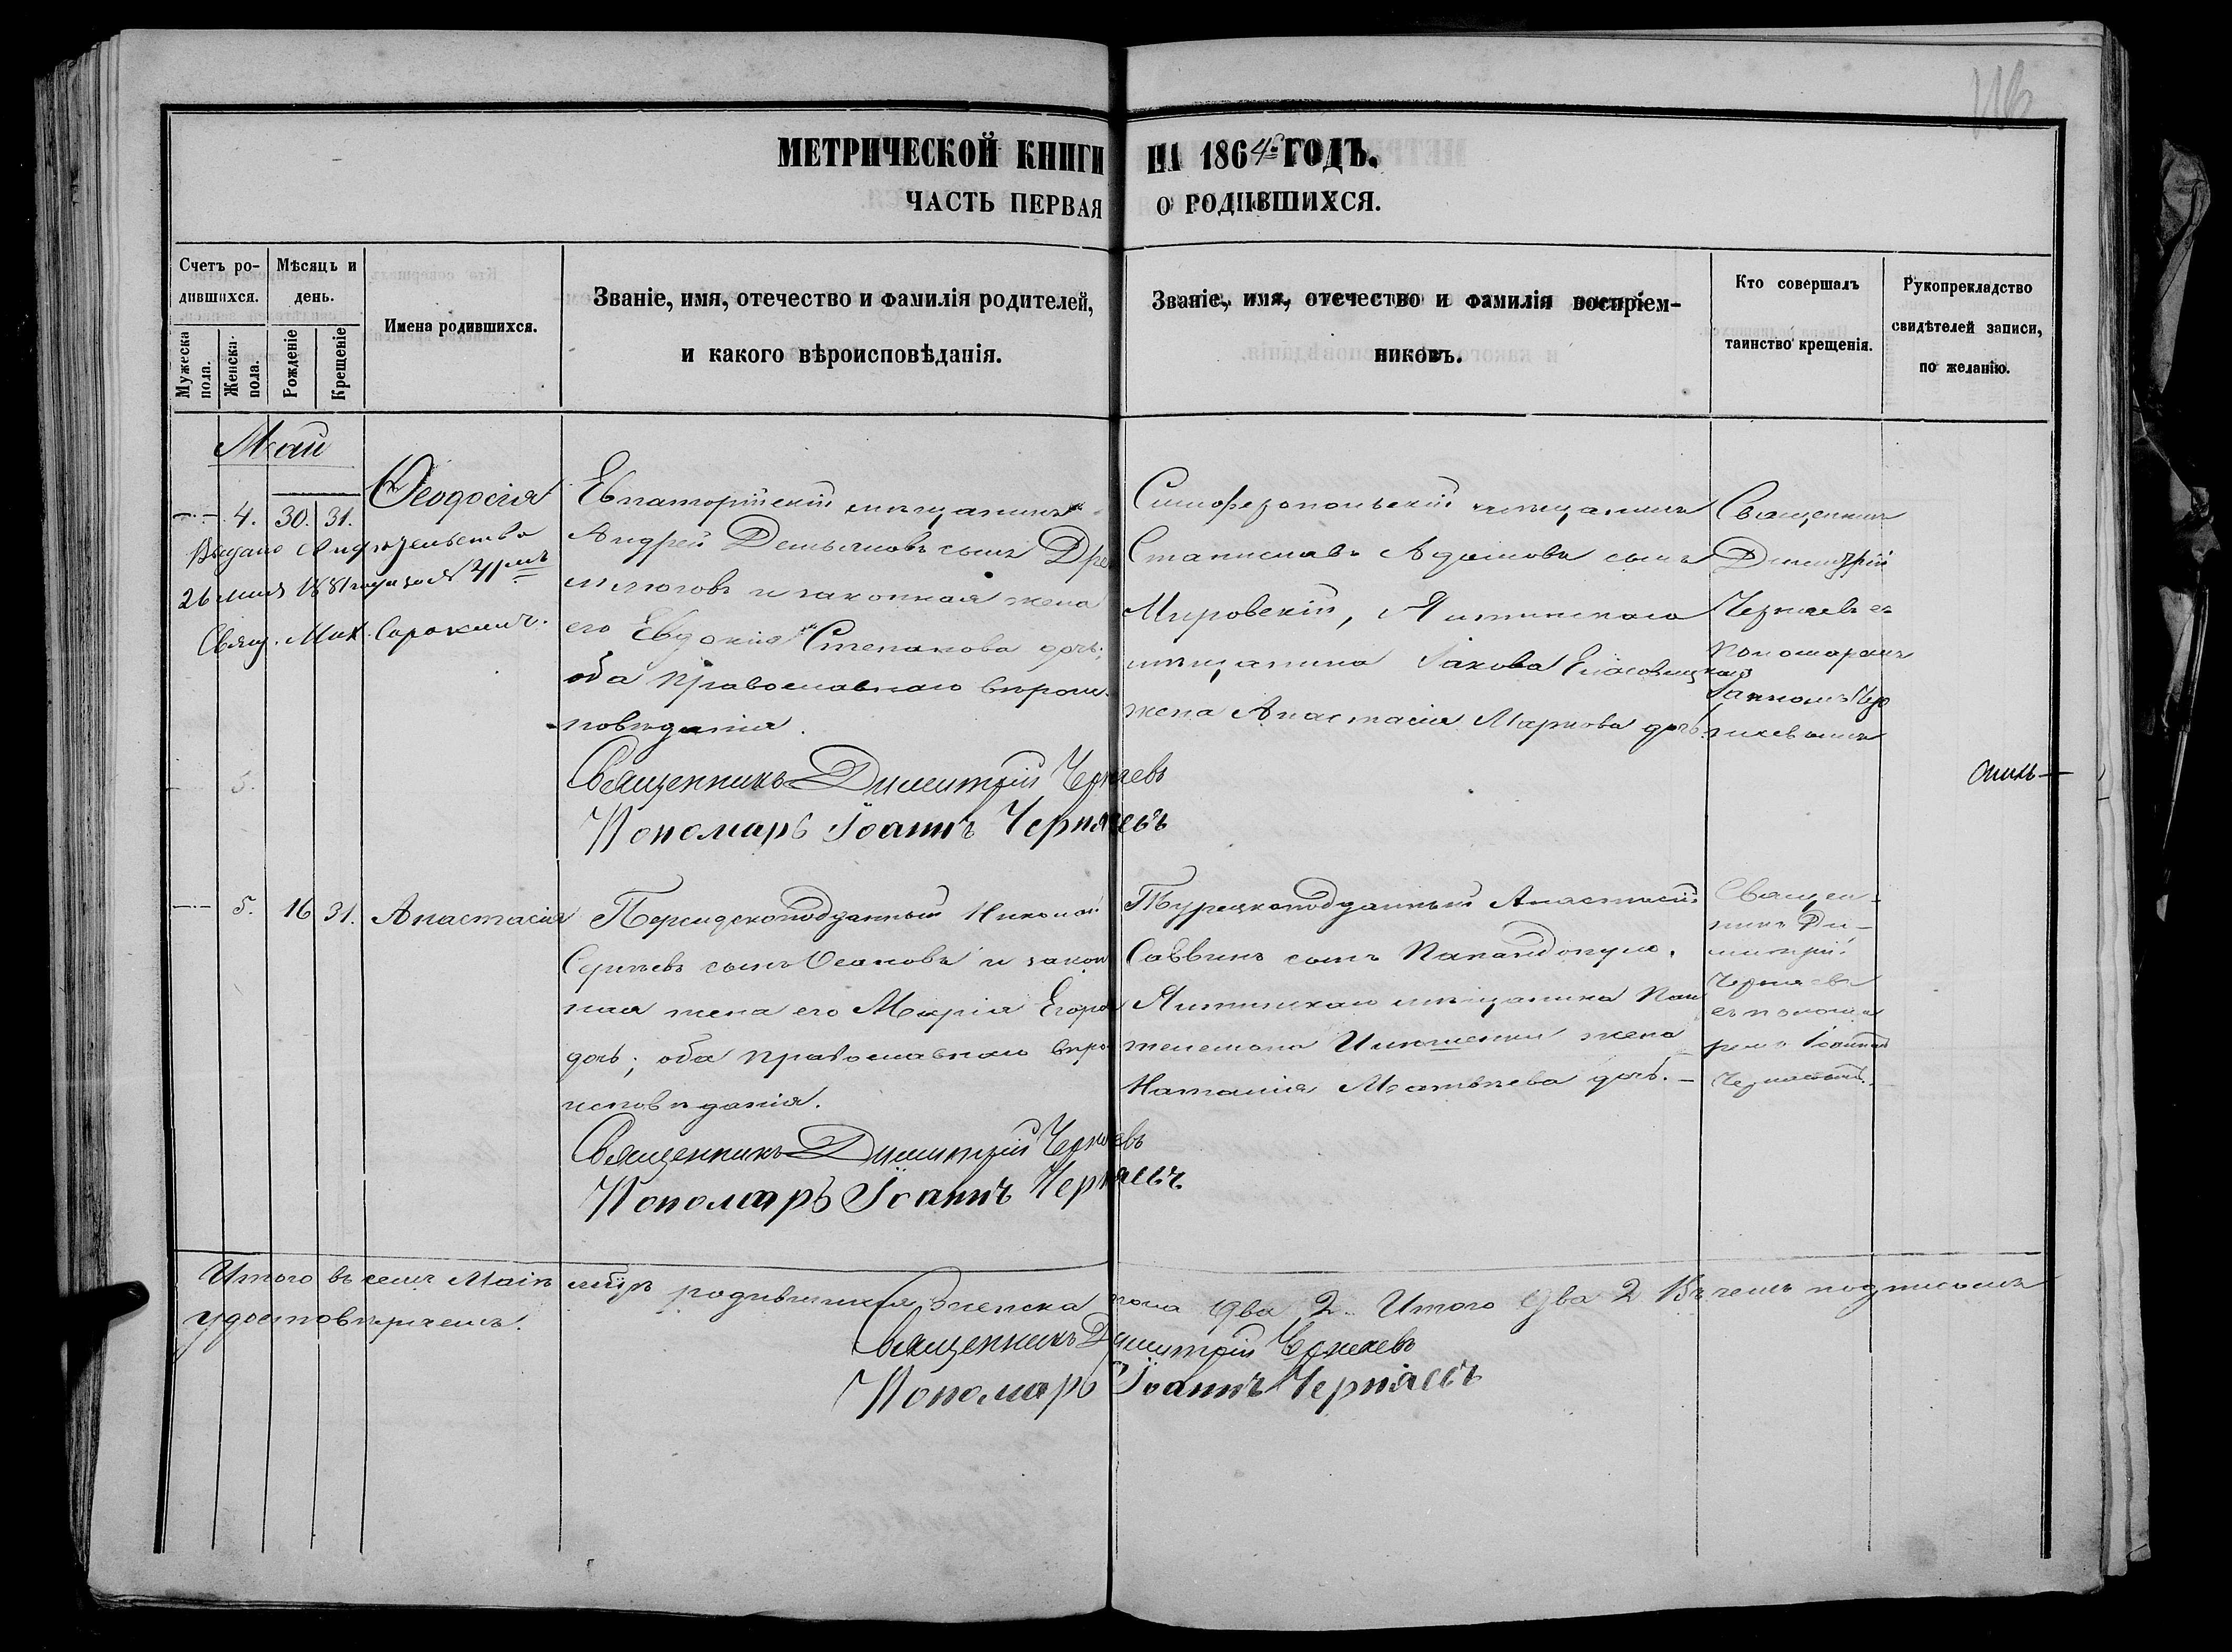 МЕТРИЧЕСКОЙ КНИГИ НА 1864й ГОДЪ.
ЧАСТЬ ПЕРВАЯ О РОДИВШИХСЯ.
Счетъ ро-
дившихся.
Мужеска пола.
Женска. пола.
Мѣсяцъ и
день.
Рожденіе
Крещеніе
Имена родившихся.
Званіе, имя, отечество и фамилія родителей,
и какого вѣроисповѣданія.
Званіе, имя, отечество и фамилія воспріем-
никовъ.
Кто совершалъ
таинство крещенія.
Рукоприкладство
свидѣтелей записи,
по желанію.
Май
4. 30. 31.
Ѳеодосія
Выдано свидѣтельство
26 мая 1881 года за № 41мъ
Свящ. Мих. Сорокинъ.
Евпаторійскій мѣщанинъ
Андрей Демьяновъ сынъ
и законная жена
его Евдокія Степанова дочь;
оба православнаго вѣроис-
повѣданія.
Священникъ Димитрій Черняевъ
Пономарь Іоаннъ Черняевъ
Симферопольскій мѣщанинъ
Станиславъ Адамовъ сынъ
Мировскій, Ялтинскаго
мѣщанина Іакова
жена Анастасія Маркова дочь.
Священникъ
Димитрій
Черняевъ съ
пономаремъ
Іоанномъ Чер
няевымъ
5.
5. 16 31. Анастасія
Персидскоподданный Николай
Сергѣевъ сынъ Осановъ и закон
ная жена его Марія Егоро
дочь; оба православнаго вѣро
исповѣданія.
Священникъ Димитрій Черняевъ
Пономарь Іоаннъ Черняевъ
Турецкоподданный Анастасій
Саввинъ сынъ Папандопуло.
Ялтинскаго мѣщанина Пан
телемона жена
Наталія Матвѣева дочь. —
Священ-
никъ Ди-
митрій
Черняевъ
съ понома
ремъ Іоанномъ
Черняевымъ.
Итого въ семъ Маѣ мѣсяцѣ родившихся женска пола два 2. Итого два 2 Въ чемъ подписомъ
удостовѣряемъ.
Священникъ Димитрій Черняевъ
Пономарь Іоаннъ Черняевъ